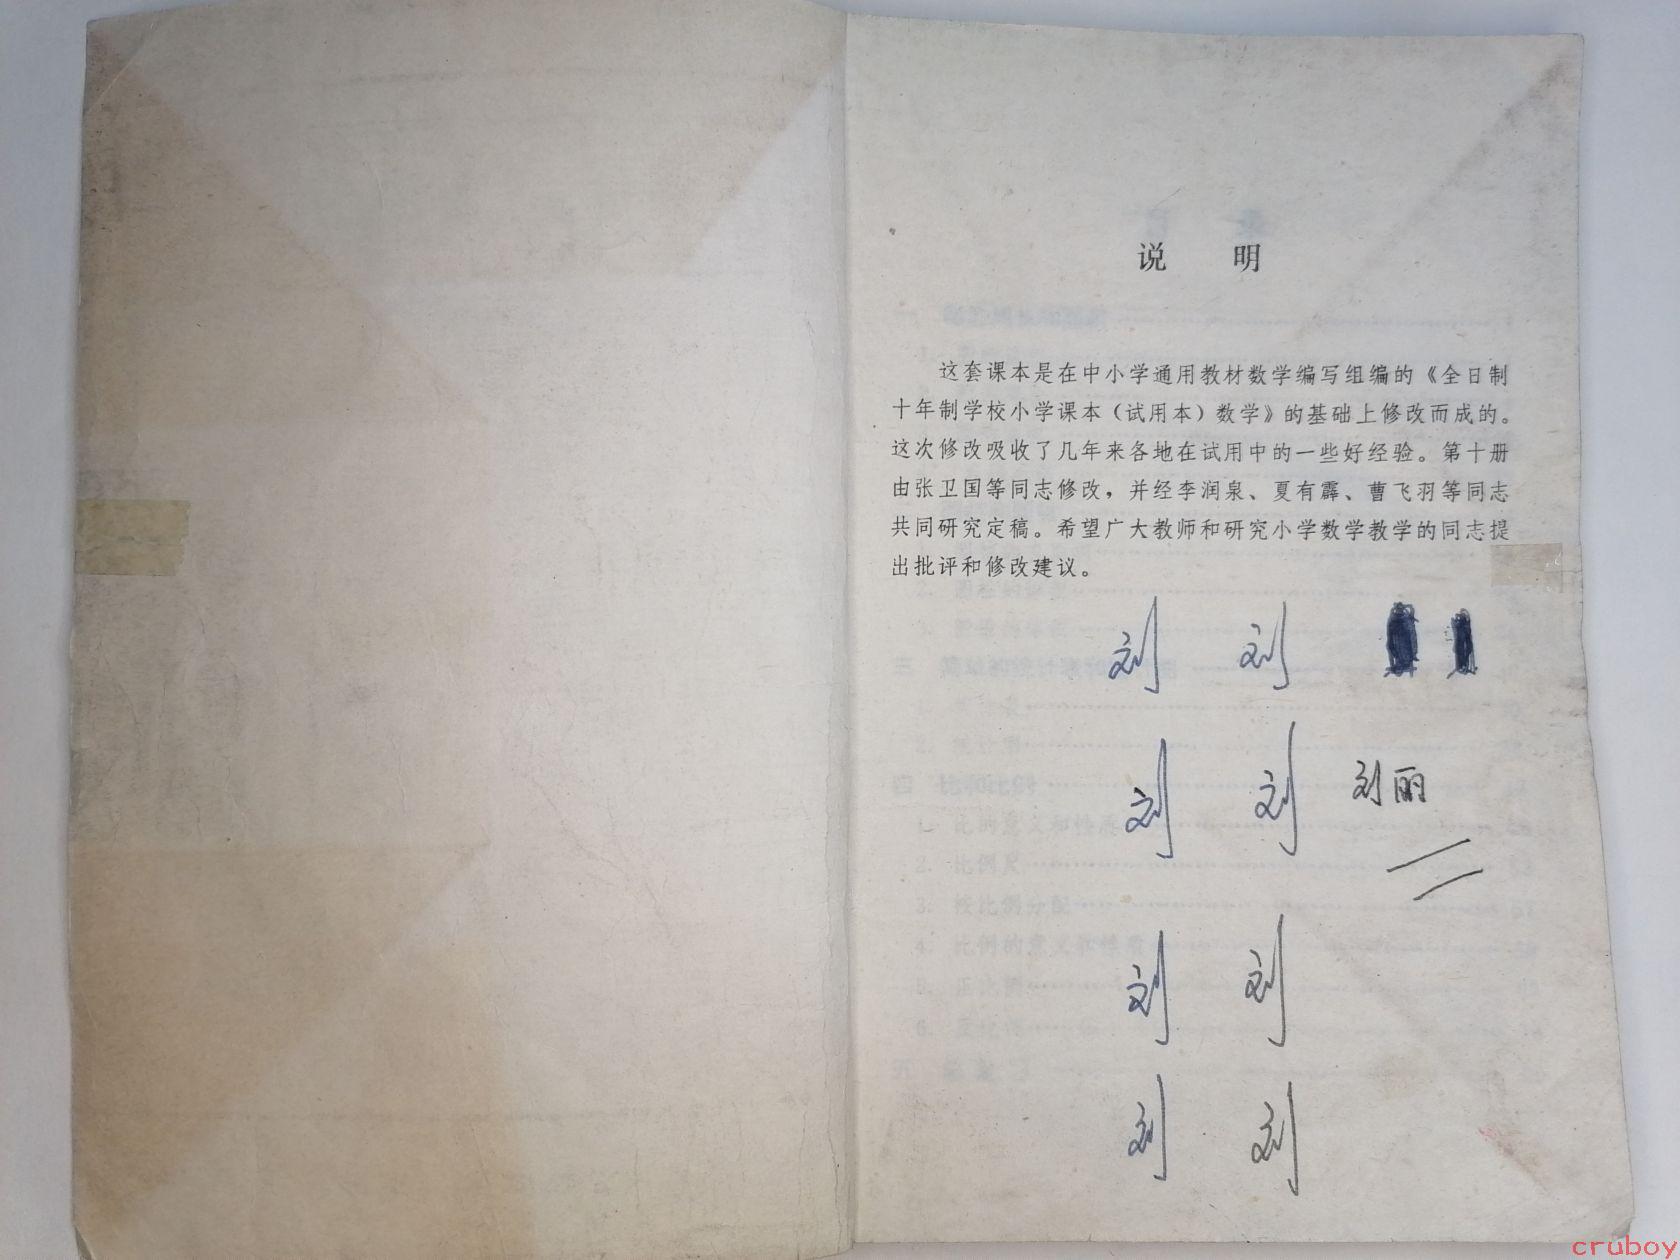 说 明
这套课本是在中小学通用教材数学编写组编的《全日制
十年制学校小学课本（试用本）数学》的基础上修改而成的。
这次修改吸收了几年来各地在试用中的一些好经验。第十册
由张卫国等同志修改，并经李润泉、夏有霖、曹飞羽等同志
共同研究定稿。希望广大教师和研究小学数学教学的同志提
出批评和修改建议。
刘 刘
刘 刘 刘丽
刘 刘
刘 刘
cruboy